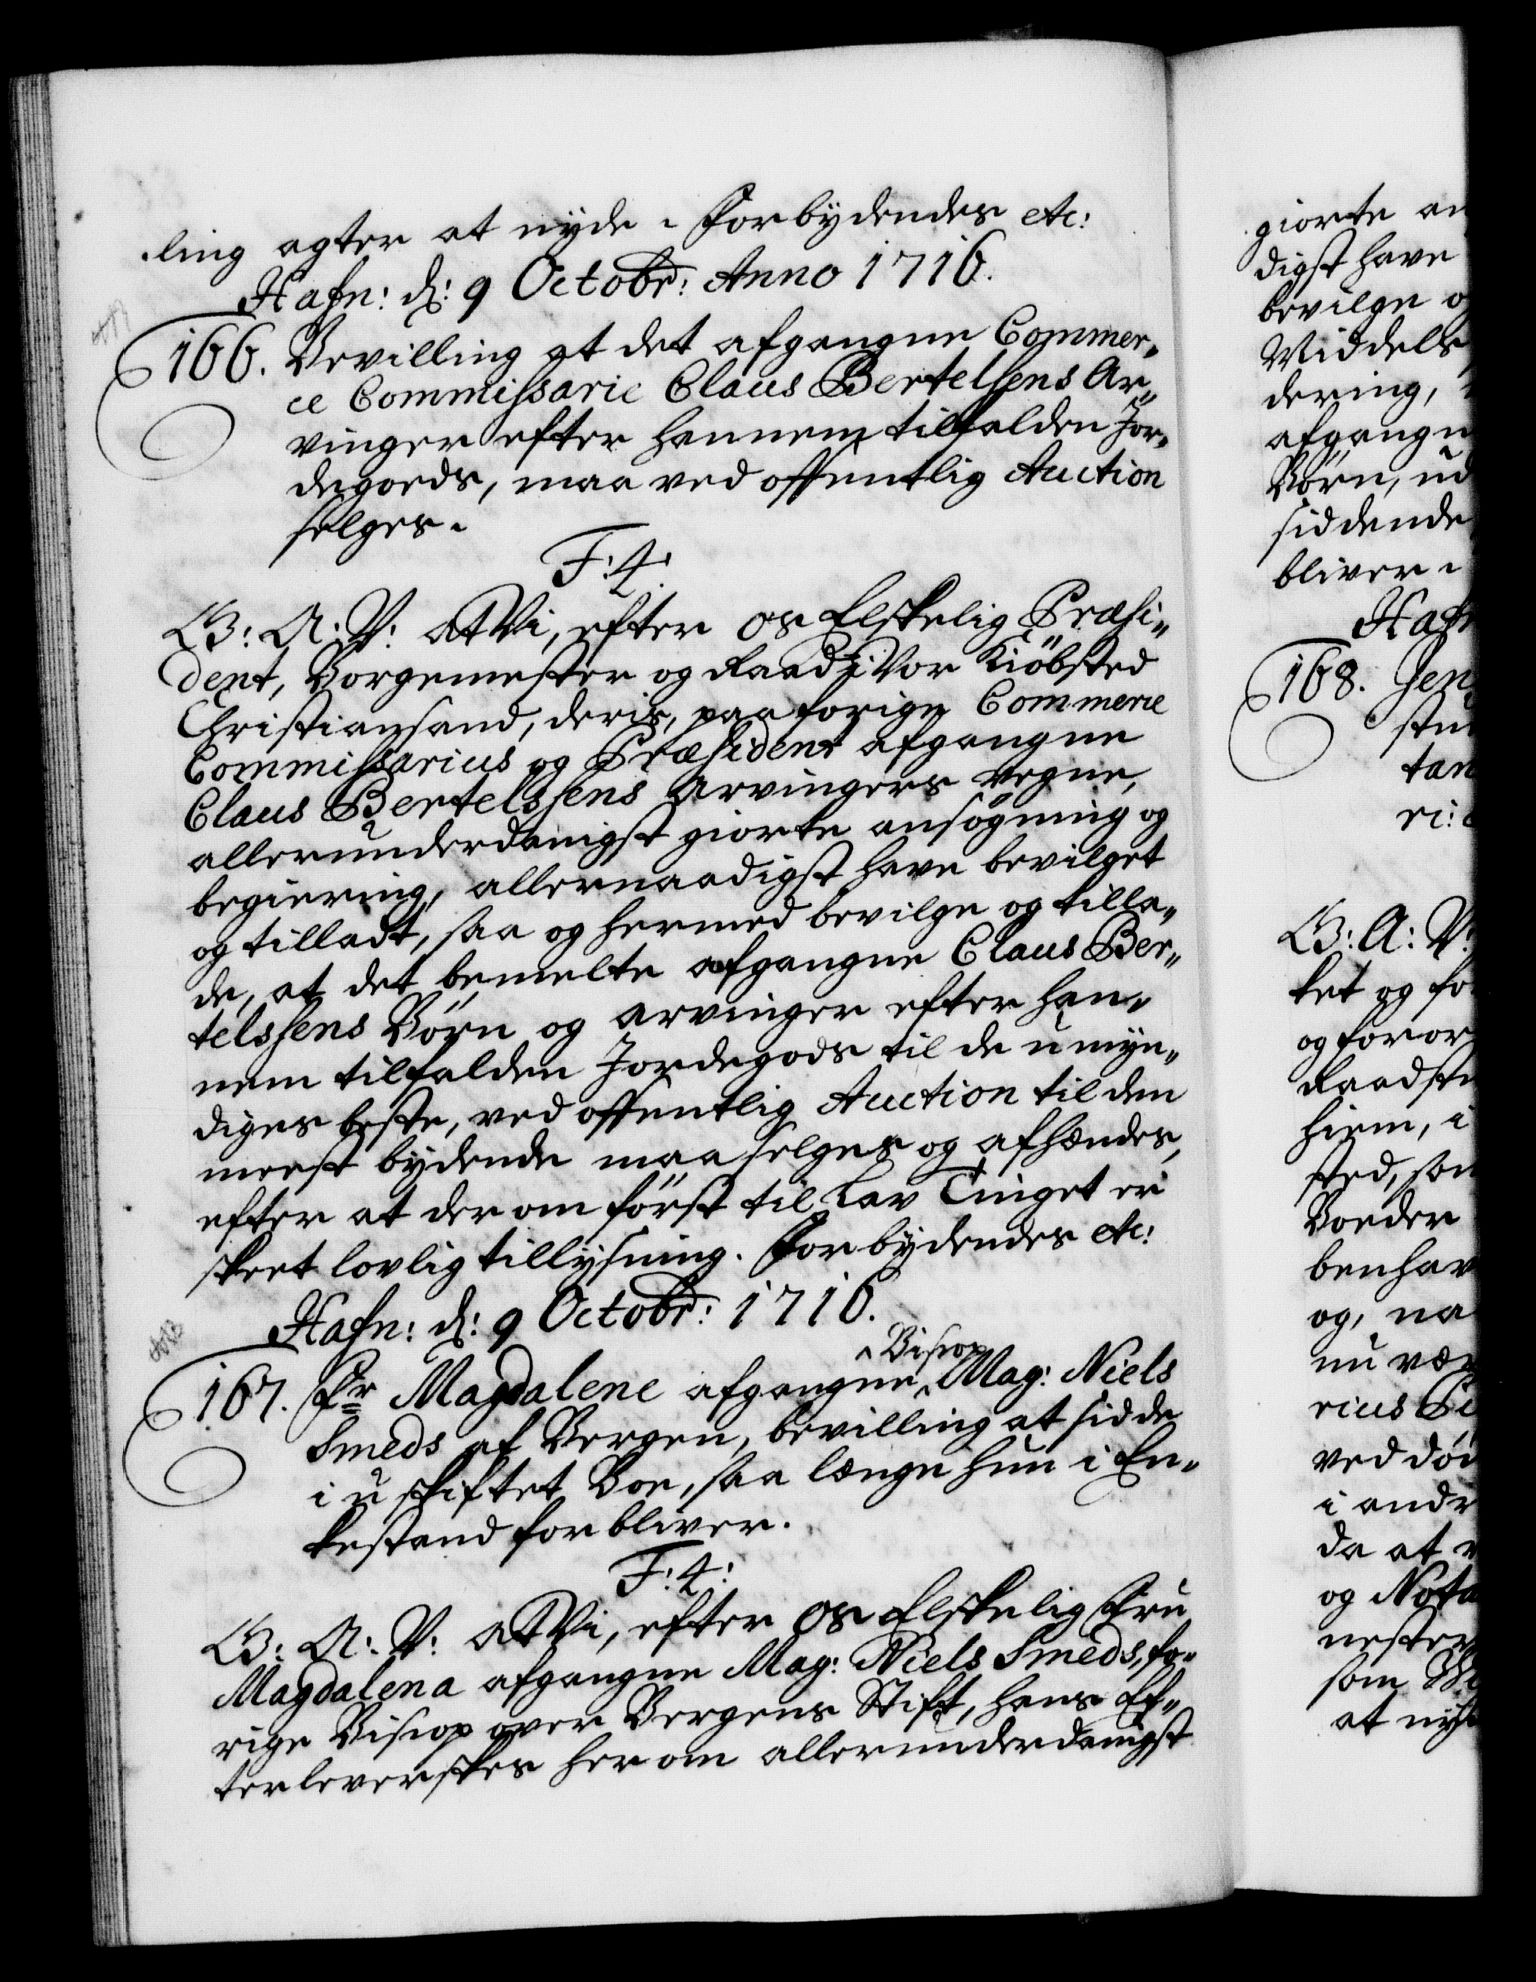 ling agter at nyde. Forbydendes etc:
Hafn: d: 9 Octobr: Anno 1716.
166. Bevilling at det afgangne Commer-
ce Commissarie Claus Bertelsens Ar-
vinger efter hannem tilfalden Jor-
degoeds, maa ved offentlig Auction
selges.
F: 4:
G: A: V: at Vi, efter os Elskelig Præsi-
dent, Borgemester og Raad i Vor Kiöbsted
Christiansand, deris, paa forige Commerce
Commissarius og Præsident afgangne
Claus Bertelssens Arvingers vegne,
allerunderdanigst giorte ansøgning og
begiering, allernaadigst have bevilget
og tilladt, saa og hermed bevilge og tilla-
de, at det bemelte afgangne Claus Ber-
telssens Børn og arvinger efter han-
nem tilfalden Jordegods til de umyn-
diges beste, ved offentlig Auction til den
meest bydende maa selges og afhændes,
efter at der om först til Lav Tinget er
skeet lovlig tillysning. Forbydendes etc:
Hafn: d: 9 Octobr: 1716.
167. Fr Magdalene afgangne Bisrop Mag: Niels
Smeds af Bergen, bevilling at sidde
i u skiftet Boe, saa længe hun i En-
kestand forbliver.
F: 4:
G: A: V: at Vi, efter os Elskelig Fru
Magdalena afgangne Mag: Niels Smeds, fo-
rige Bisrop over Bergens Stift, hans Ef-
terleverskes her om allerunderdanigst
giorte an
digst have
bevilge o
Middels
dering,
afgangn
Börn, ud
siddende
bliver.
Hafn
168. Jen
stu
tan
ri:
G: A: V:
ket og fo
og foror
Raadst
hiem, i
sted, som
Boeder
benhav
og, na
nu vær
rius Pe
ved död
i andr
da at
og Nota
nester
som We
at nyde